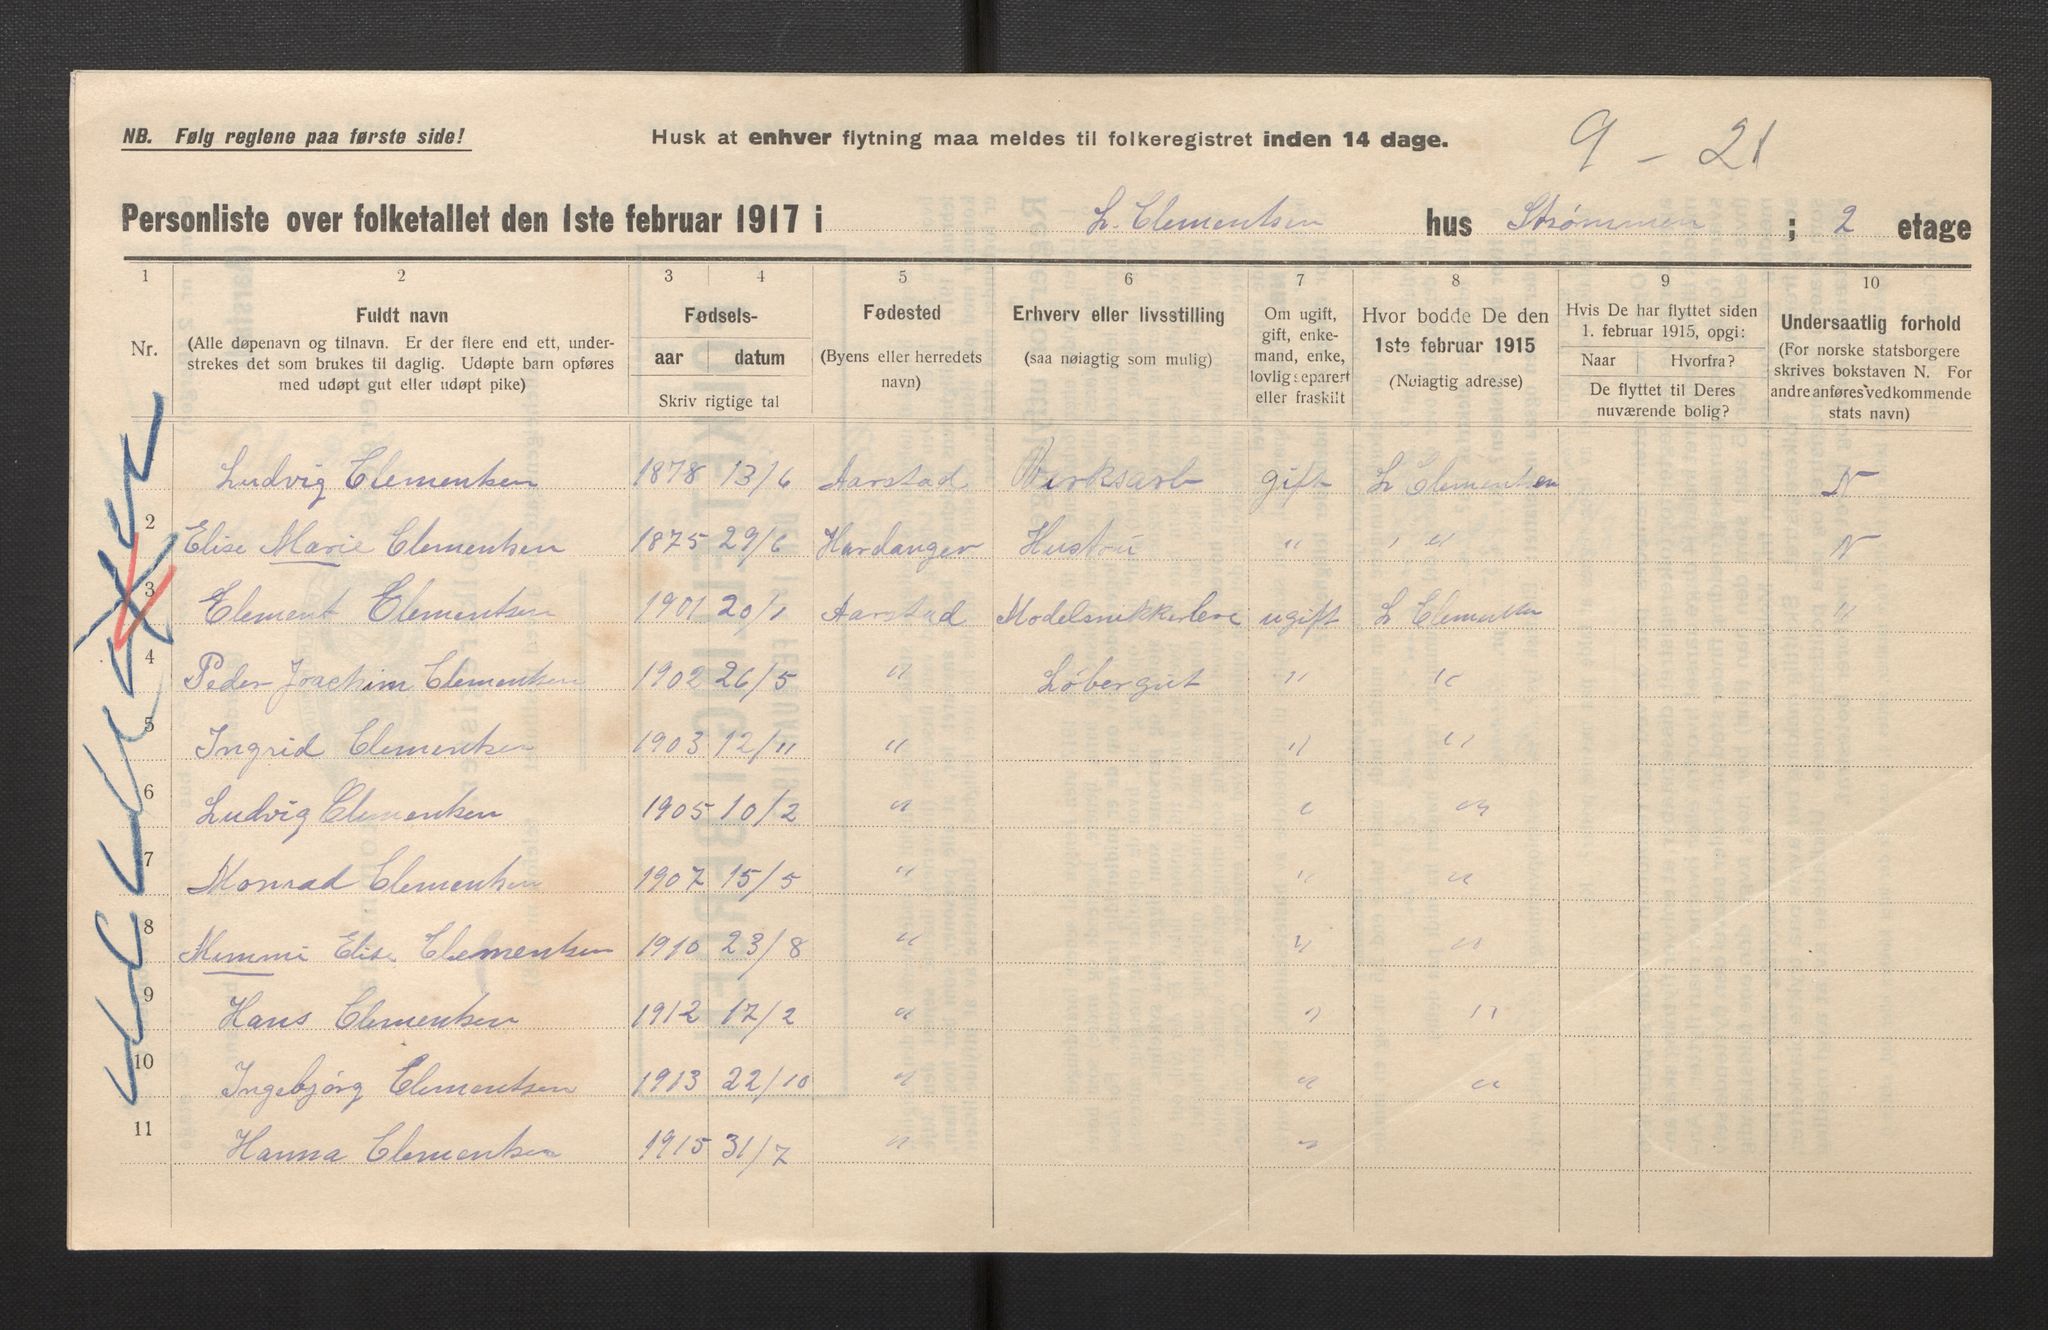 NB. Følg reglene paa første side!
Husk at enhver flytning maa meldes til folkeregistret inden 14 dage.
9 - 21
Personliste over folketallet den 1ste februar 1917 i L. Clementsen hus Strømmen ; 2 etage
1 2 3 4 5 6 7 8 9 10
Nr.
Fuldt navn
(Alle døpenavn og tilnavn. Er der flere end ett, under-
strekes det som brukes til daglig. Udøpte barn opføres
med udøpt gut eller udøpt pike)
Fødsels-
aar datum
Skriv rigtige tal
Fødested
(Byens eller herredets
navn)
Erhverv eller livsstilling
(saa nøiagtig som mulig)
Om ugift,
gift, enke-
mand, enke,
lovlig separert
eller fraskilt
Hvor bodde De den
1ste februar 1915
(Nøiagtig adresse)
Hvis De har flyttet siden
1. februar 1915, opgi:
Naar Hvorfra?
De flyttet til Deres
nuværende bolig?
Undersaatlig forhold
(For norske statsborgere
skrives bokstaven N. For
andre anføres vedkommende
stats navn)
Ludvig Clementsen 1878 13/6 Aarstad Verksarb gift L Clementsen N
2 Elise Marie Clementsen 1875 29/6 Hardanger Hustru " " " N
3 Clement Clementsen 1901 20/1 Aarstad Modelsnikkerlere ugift L Clementsen "
4 Peder Joachim Clementsen 1902 26/5 " Løbergut " "
5 Ingrid Clementsen 1903 12/11 " " "
6 Ludvig Clementsen 1905 10/2 " " "
7 Monrad Clementsen 1907 15/5 " " "
8 Mimmi Elise Clementsen 1910 23/8 " " "
9 Hans Clementsen 1912 17/2 " " "
10 Ingebjørg Clementsen 1913 22/10 " " "
11 Hanna Clementsen 1915 31/7 " "